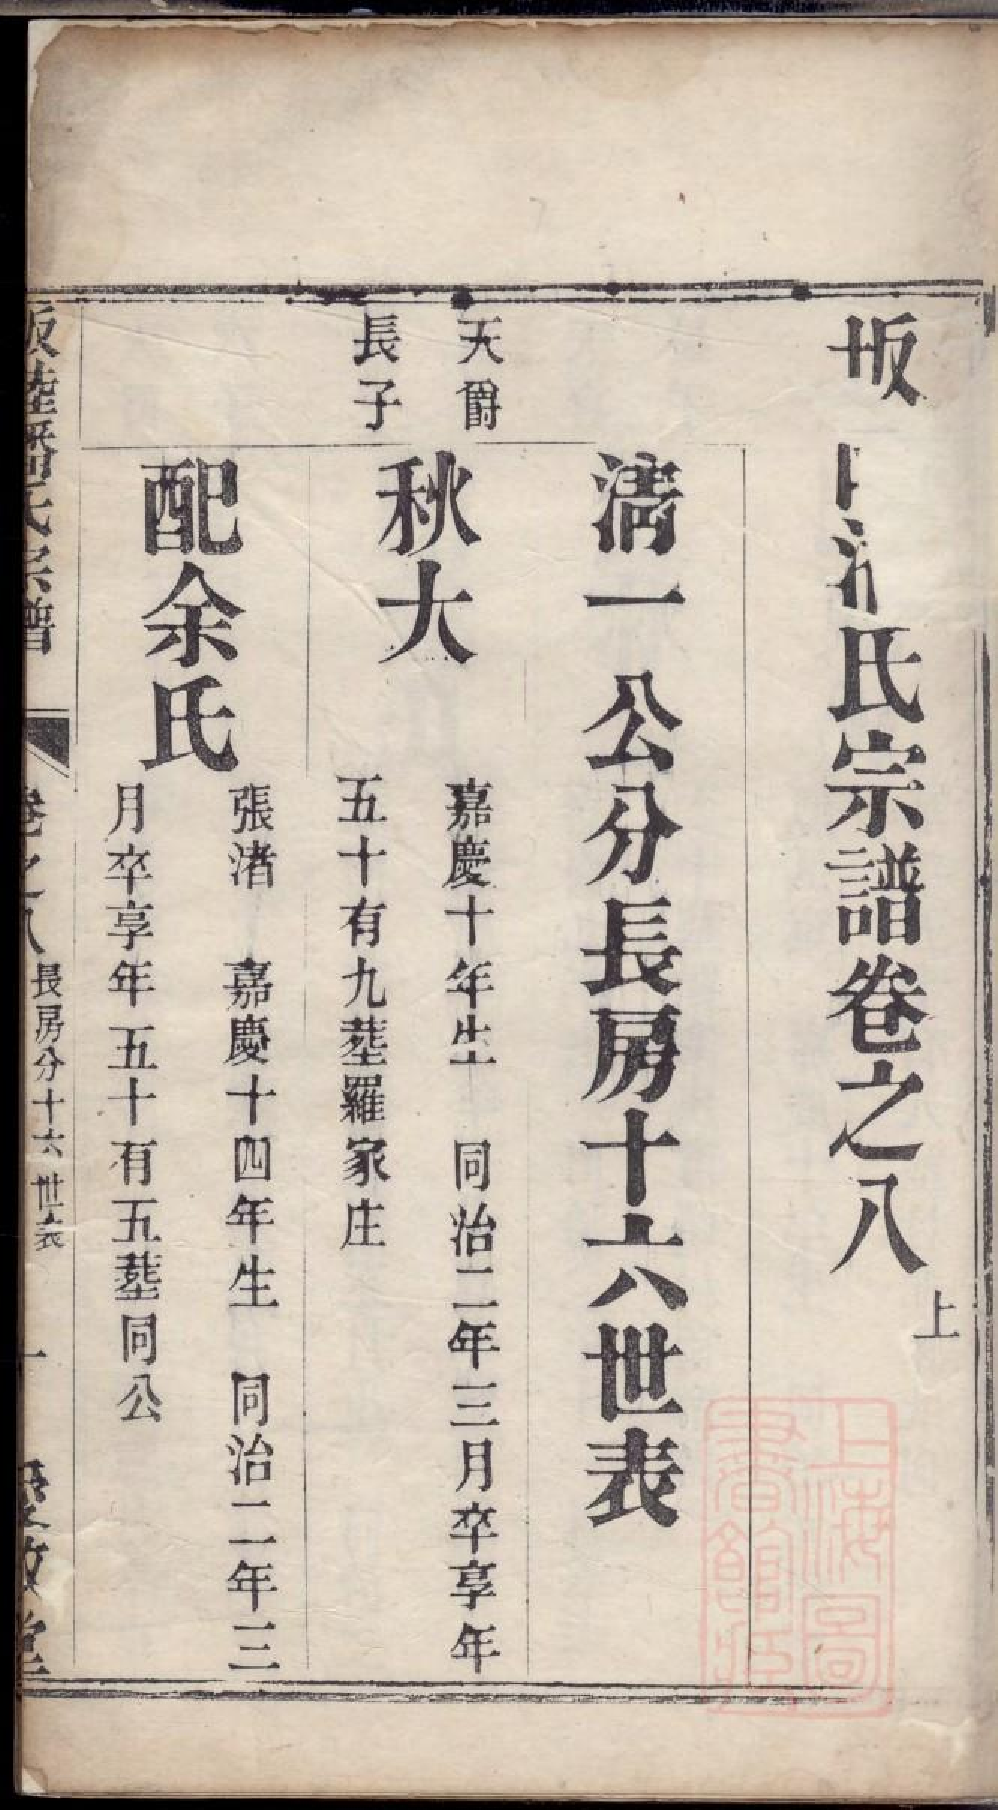 坂 氏宗譜卷之八 上
淸一公分長房十六世表
天爵
長子
秋大
嘉慶十年生 同治二年三月卒享年
五十有九塟羅家庄
配余氏
張渚 嘉慶十四年生 同治二年三
月卒享年五十有五塟同公
宗譜 卷之八 長房分十六世表 一
上海圖
書館藏